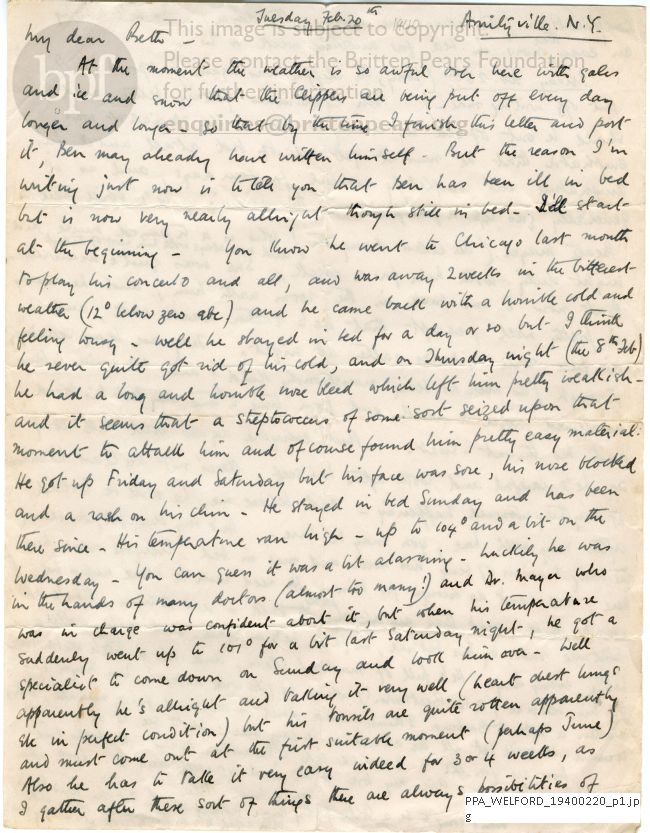 Tuesday Feb. 20th 1940 Amityville. N.Y.
My dear Beth –
At the moment the weather is so awful over here with gales
and ice and snow that the Clippers are being put off every day
longer and longer – so that by the time I finish this letter and post
it, Ben may already have written himself – But the reason I'm
writing just now is to tell you that Ben has been ill in bed
but is now very nearly allright though still in bed – I'll start
at the beginning – You know he went to Chicago last month
to play his concerto and all, and was away 2 weeks in the bitterest
weather (12° below zero etc) and he came back with a horrible cold and
feeling lousy – well he stayed in bed for a day or so but I think
he never quite got rid of his cold, and on Thursday night (the 8th Feb)
he had a long and horrible nose bleed which left him pretty weakish –
and it seems that a streptococcus of some sort seized upon that
moment to attack him and of course found him pretty easy material.
He got up Friday and Saturday but his face was sore, his nose blocked
and a rash on his chin – He stayed in bed Sunday and has been
there since – His temperature ran high – up to 104° and a bit on the
Wednesday – You can guess it was a bit alarming – Luckily he was
in the hands of many doctors (almost too many!) and Dr. Mayer who
was in charge was confident about it, but when his temperature
suddenly went up to 101° for a bit last Saturday night, he got a
specialist to come down on Sunday and look him over – Well
apparently he's allright and taking it very well (heart chest lungs
etc in perfect condition) but his tonsils are quite rotten apparently
and must come out at the first suitable moment (perhaps June)
Also he has to take it very easy indeed for 3 or 4 weeks, as
I gather after these sort of things there are always possibilities of
bpf
This image is subject to copyright.
Please contact the Britten Pears Foundation
for further information
enquiries@brittenpears.org
PPA_WELFORD_19400220_p1.jp
g